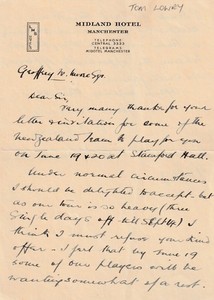 TOM LOWRY
MIDLAND HOTEL
MANCHESTER
TELEPHONE
CENTRAL 3333
TELEGRAMS
MIDOTEL MANCHESTER
Geoffrey W. Esq.
Dear Sir,
Very many thanks for your
letter & invitation for some of the
New Zealand team to play for you
on June 19 & 20 at Stanford Hall.
Under normal circumstances
I should be delighted to accept - but
as our tour is so heavy (three
single days off till Sept 14) I
think I must refuse your kind
offer - I feel that by June 19
some of our players will be
wanting somewhat of a rest